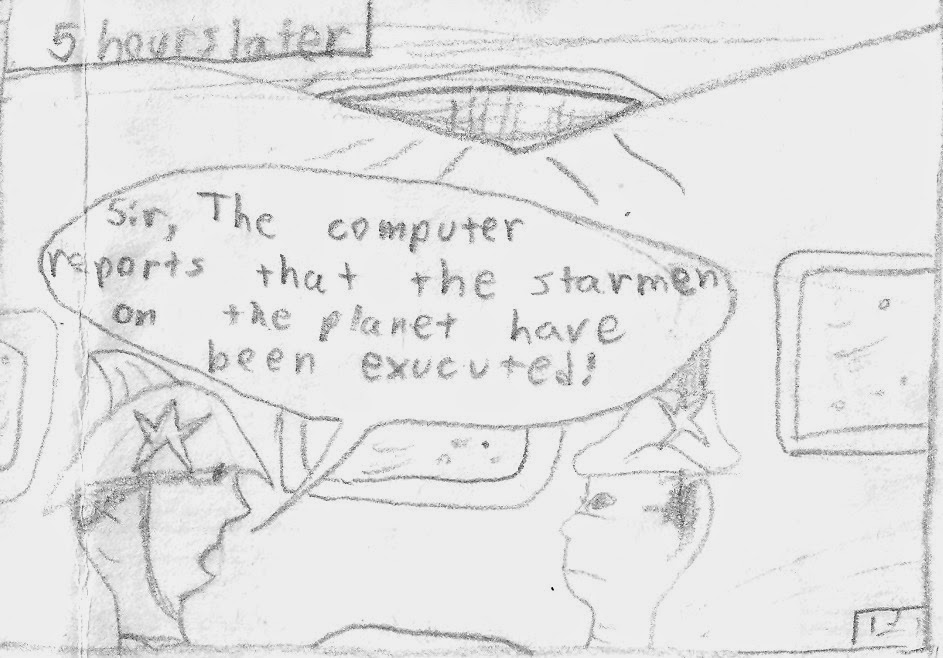 5 hours later
Sir, The computer
reports that the starmen
on the planet have
been exucuted!